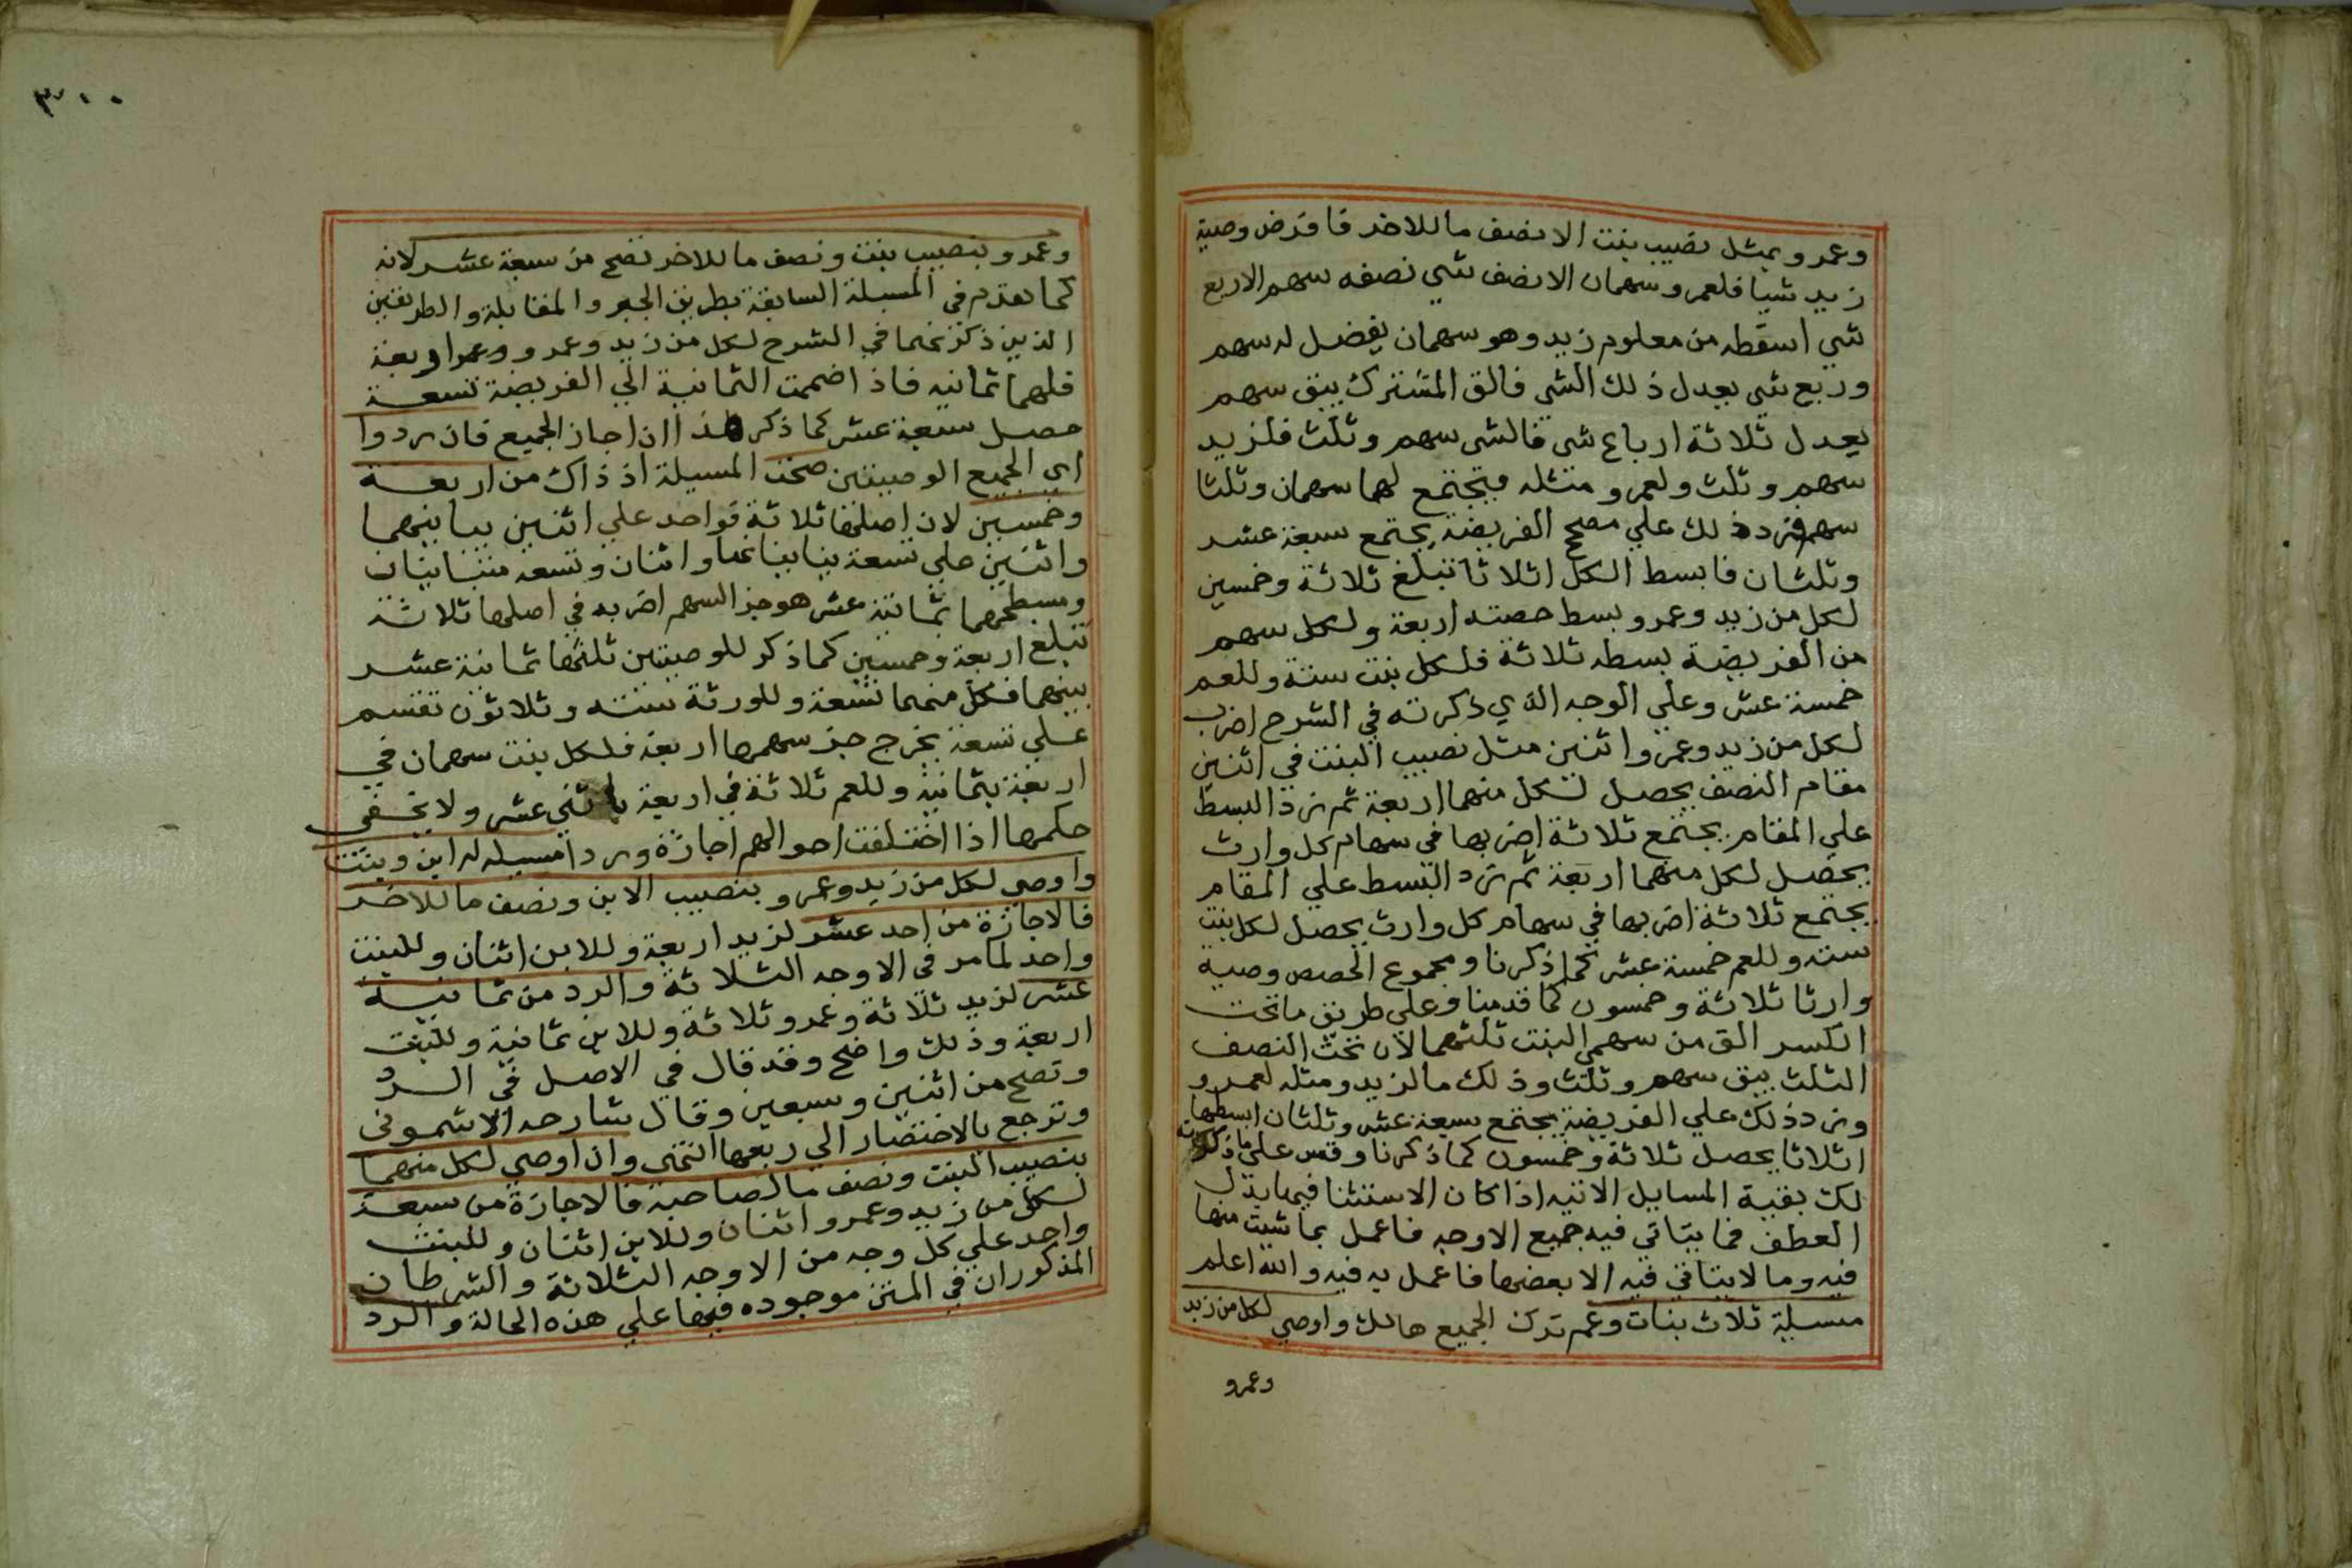 وعمرو بمثل نصيب بنت الا نصف ما للاخر فافرض وصية
زيد شيا فلعمرو سهمان الا نصف شي نصفه سهم الا ربع
شي اسقطه من معلوم زيد وهو سهمان يفضل له سهم
وربع شي يعدل ذلك الشي فالق المشترك يبق سهم
يعدل ثلاثة ارباع شي فالشي سهم وثلث فلزيد
سهم وثلث ولعمرو مثله فيجتمع لهما سهمان وثلثا
سهم فزد ذلك علي مصحح الفريضة يجتمع سبعة عشر
وثلثان فابسط الكل اثلاثا تبلغ ثلاثة وخمسين
لكل من زيد وعمرو بسط حصته اربعة ولكل سهم
من الفريضة بسطه ثلاثة فلكل بنت ستة وللعم
خمسة عشر وعلي الوجه الذي ذكرته في الشرح اضرب
لكل من زيد وعمرو اثنين مثل نصيب البنت في اثنين
مقام النصف يحصل لكل منهما اربعة ثم زد البسط
علي المقام يجتمع ثلاثة اضربها في سهام كل وارث
يحصل لكل منهما اربعة ثم زد البسط علي المقام
يجتمع ثلاثة اضربها في سهام كل وارث يحصل لكل بنت
ستة وللعم خمسة عشر كما ذكرنا ومجموع الحصص وصية
وارثا ثلاثة وخمسون كما قدمنا وعلي طريق ما تحت
الكسر الق من سهمي البنت ثلثهما لان تحت النصف
الثلث يبق سهم وثلث وذلك ما لزيد ومثله لعمرو
وزد ذلك علي الفريضة يجتمع سبعة عشر وثلثان ابسطها
اثلاثا يحصل ثلاثة وخمسون كما ذكرنا وقس علي ما ذكرته
لك بقية المسايل الاتية اذا كان الاستثنا فيها بدل
العطف فما يتاتي فيه جميع الاوجه فاعمل بما شيت منها
فيه وما لا يتاتي فيه الا بعضها فاعمل به فيه والله اعلم
مسيلة ثلاث بنات وعم ترك الجميع هالك واوصي لكل من زيد
وعمرو
٣٠٠
وعمرو بنصيب بنت ونصف ما للاخر تصح من سبعة عشر لانه
كما تقدم في المسيلة السابقة بطريق الجبر والمقابلة والطريقين
الذين ذكرتهما في الشرح لكل من زيد وعمرو اربعة
فلهما ثمانيه فاذا ضممت الثمانية الي الفريضة تسعة
حصل سبعة عشر كما ذكر هذا ان اجاز الجميع فان ردوا
اي الجميع الوصيتين صحت المسيلة اذ ذاك من اربعة
وخمسين لان اصلها ثلاثة فواحد علي اثنين يباينهما
واثنين علي تسعة يباينانها واثنان وتسعه متباينان
ومسطحهما ثمانية عشر هو جز السهم اضربه في اصلها ثلاثة
تبلغ اربعة وخمسين كما ذكر للوصيتين ثلثها ثمانية عشر
بينهما فكل منهما تسعة وللورثة ستة وثلاثون تقسم
علي تسعة يخرج جز سهمها اربعة فلكل بنت سهمان في
اربعة بثمانية وللعم ثلاثة في اربعة باثني عشر ولا يخفي
حكمها اذا اختلفت احوالهم اجازة وردا مسيله له ابن وبنت
واوصي لكل من زيد وعمرو بنصيب الابن ونصف ما للاخر
فالاجازة من احد عشر لزيد اربعة وللابن اثنان وللبنت
واحد لما مر في الاوجه الثلاثة والرد من ثمانية
عشر لزيد ثلاثة وعمرو ثلاثة وللابن ثمانية وللبنت
اربعة وذلك واضح وقد قال في الاصل في الرد
وتصح من اثنين وسبعين وقال شارحه الاشموني
وترجع بالاختصار الي ربعها انتهي وان اوصي لكل منهما
بنصيب البنت ونصف ما لصاحبه فالاجازة من سبعة
لكل من زيد وعمرو اثنان وللابن اثنان وللبنت
واحد علي كل وجه من الاوجه الثلاثة والشرطان
المذكوران في المتن موجوده فيها علي هذه الحالة والرد